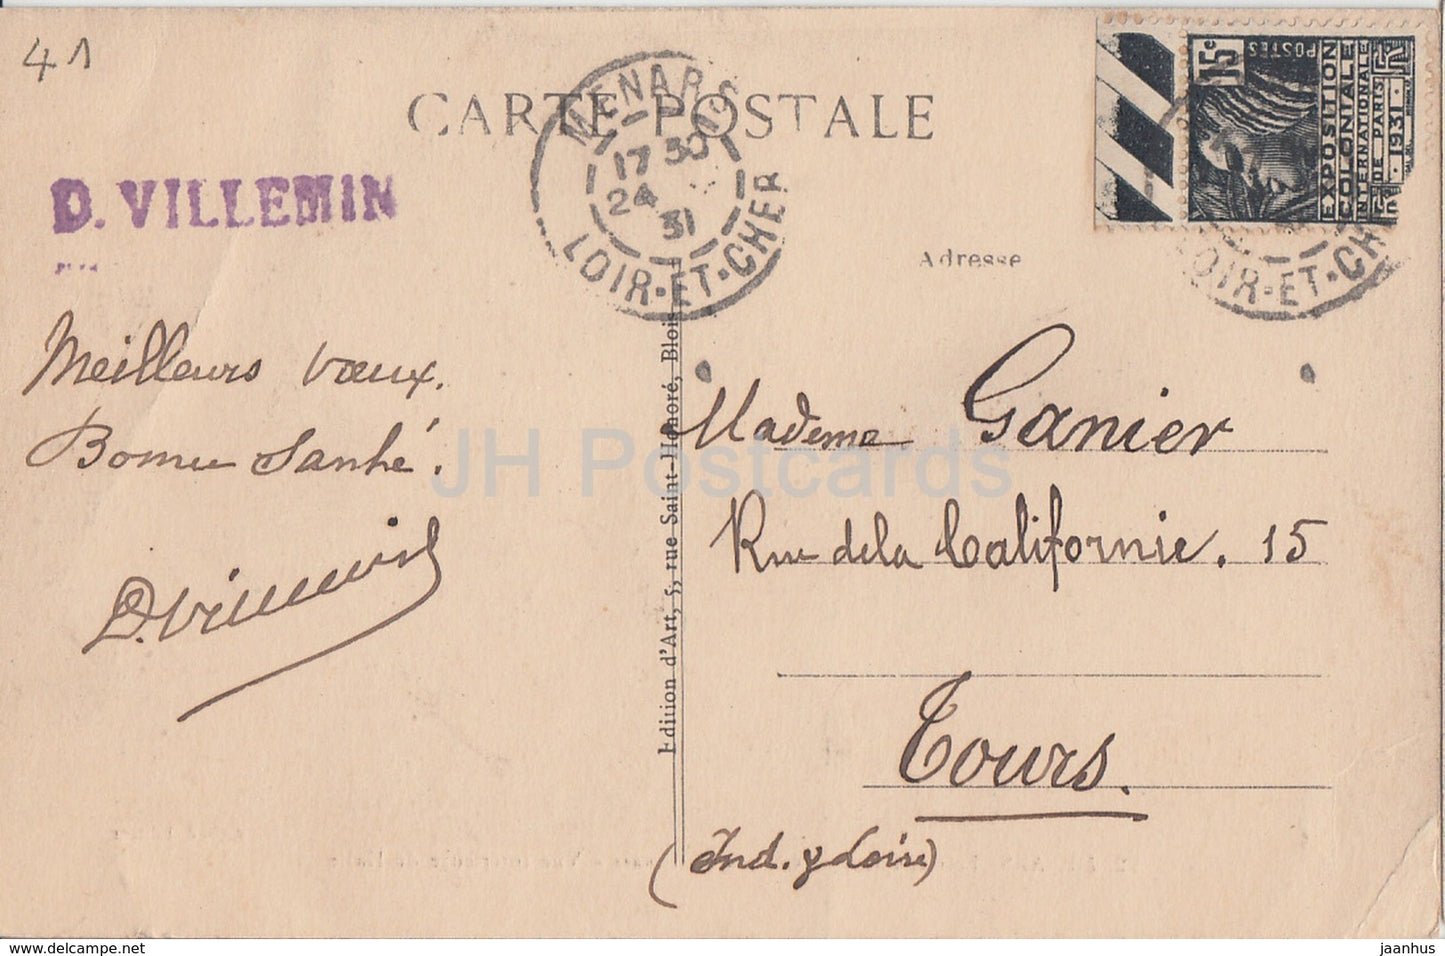 41
CARTE POSTALE
D. VILLEMIN
MENARS
17 30
24
31
LOIR-ET-CHER
15c
POSTES
EXPOSITION
COLONIALE
INTERNATIONALE
DE PARIS
1931
LOIR-ET-CHE
Adresse
Meilleurs vœux.
Bonne Santé.
D. Villemin
Edition d'Art, 5, rue Saint-Honoré, Blois
Madame Ganier
Rue de la Californie. 15
Tours.
(Ind. & Loire)
JH Postcards
www.delcampe.net
jaanhus